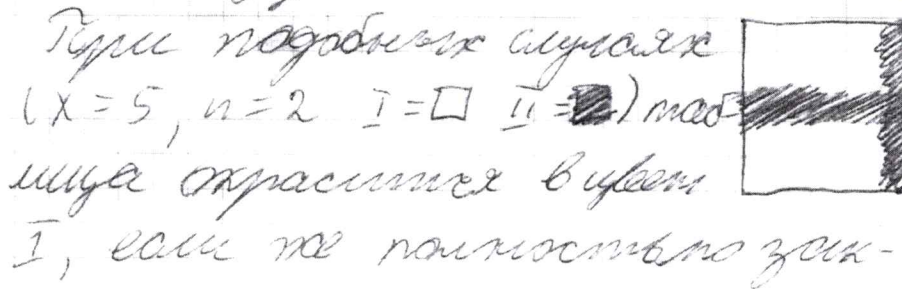 При подобных случаях
(x = 5, n = 2 I = □ II = ■) таб-
лица окрасится в цвет
I, если же полностью зак-